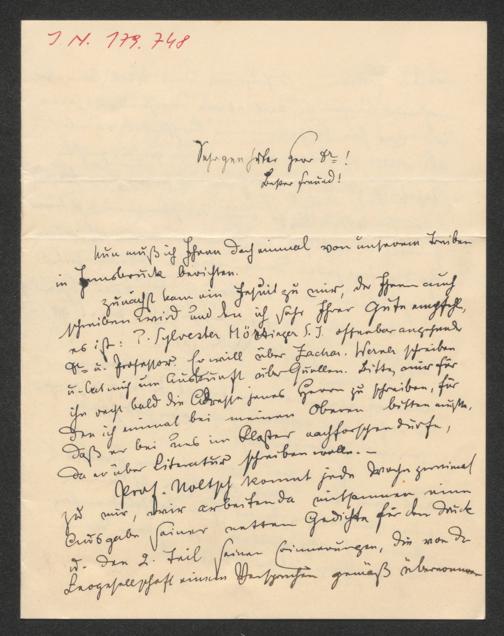 I. N. 179.748
Sehr geehrter Herr Dr!
Bester Freund!
Nun muß ich Ihnen doch einmal von unserem Treiben
in Innsbruck berichten.
Zunächst kam ein Jesuit zu mir, der Ihnen auch
schreiben wird und den ich sehr Ihrer Güte empfehle,
es ist: P. Sylvester S. J. offenbar angehender
Dr u. Professor. Er will über Zachar. Werner schreiben
u. bat mich um Auskunft über Quellen. Bitte, mir für
ihn recht bald die Adresse jenes Herrn zu schreiben, für
den ich einmal bei meinen Oberen bitten mußte,
daß er bei uns im Kloster nachforschen dürfe,
da er über Literatur schreiben wolle. –
Prof. kommt jede Woche zweimal
zu mir, wir arbeiten da mitsammen eine
Ausgabe seiner netten Gedichte für den Druck
u. den 2. Teil seiner Erinnerungen, die von der
Leogesellschaft einem Versprechen gemäß übernommen